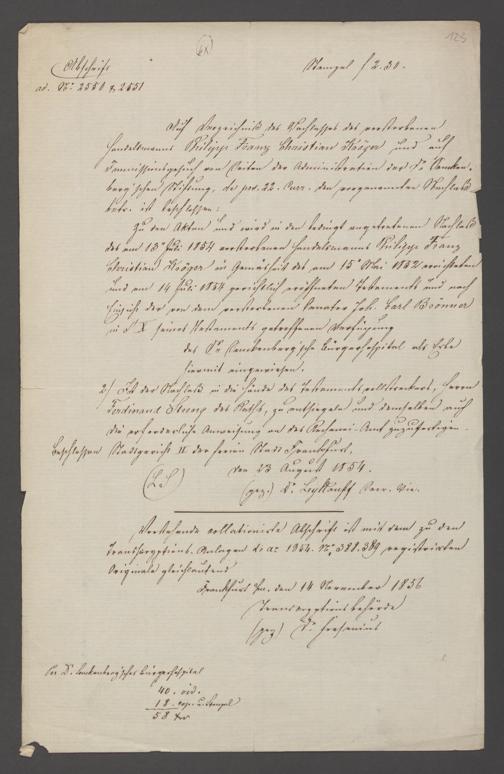 123
Abschrift
Stempel f 2.30.
ad. No. 2550 & 2551
Auf Verzeichniß des Nachlasses des verstorbenen
Handelsmanns Philipp Franz Christian Kröger, und auf
Immissionsgesuch von Seiten der Administration der Dr. Senken-
berg'schen Stiftung, de pr. 22. curr. den vorgenannten Nachlaß
betr. ist beschlossen:
Zu den Akten und wird in den bedingt angetretenen Nachlaß
des am 13. Juli 1854 verstorbenen Handelsmanns Philipp Franz
Christian Kröger in Gemäsheit des am 15. Mai 1852 errichteten
und am 14 Juli 1854 gerichtlich eröffneten Testaments und nach
der von dem verstorbenen Senator Joh. Carl Brönner
in § X seines Testaments getroffenen Verfügung
das Dr. Senkenberg'sche Bürgerhospital als Erbe
hiermit eingewiesen.
2) Ist der Nachlaß in die Hände des Testamentsvollstreckers, Herrn
Ferdinand des Raths, zu entsiegeln und demselben auch
die erforderliche Anweisung an das Rechenei-Amt zuzufertigen.
Beschlossen Stadtgericht II der freien Stadt Frankfurt,
den 23 August 1854.
(L.S.)
(gez.) Dr.
Vorstehende collationirte Abschrift ist mit dem zu den
Transscriptions-Anlagen de ao 1854. No. 388.389 registrirten
Originale gleichlautend
Frankfurt a/m. den 14 November 1856
Transscriptionsbehörde
(gez.) Dr. Fresenius
Dr. Senkenbergisches Bürgerhospital
40. vid.
18. cop. u. Stempel
58 kr